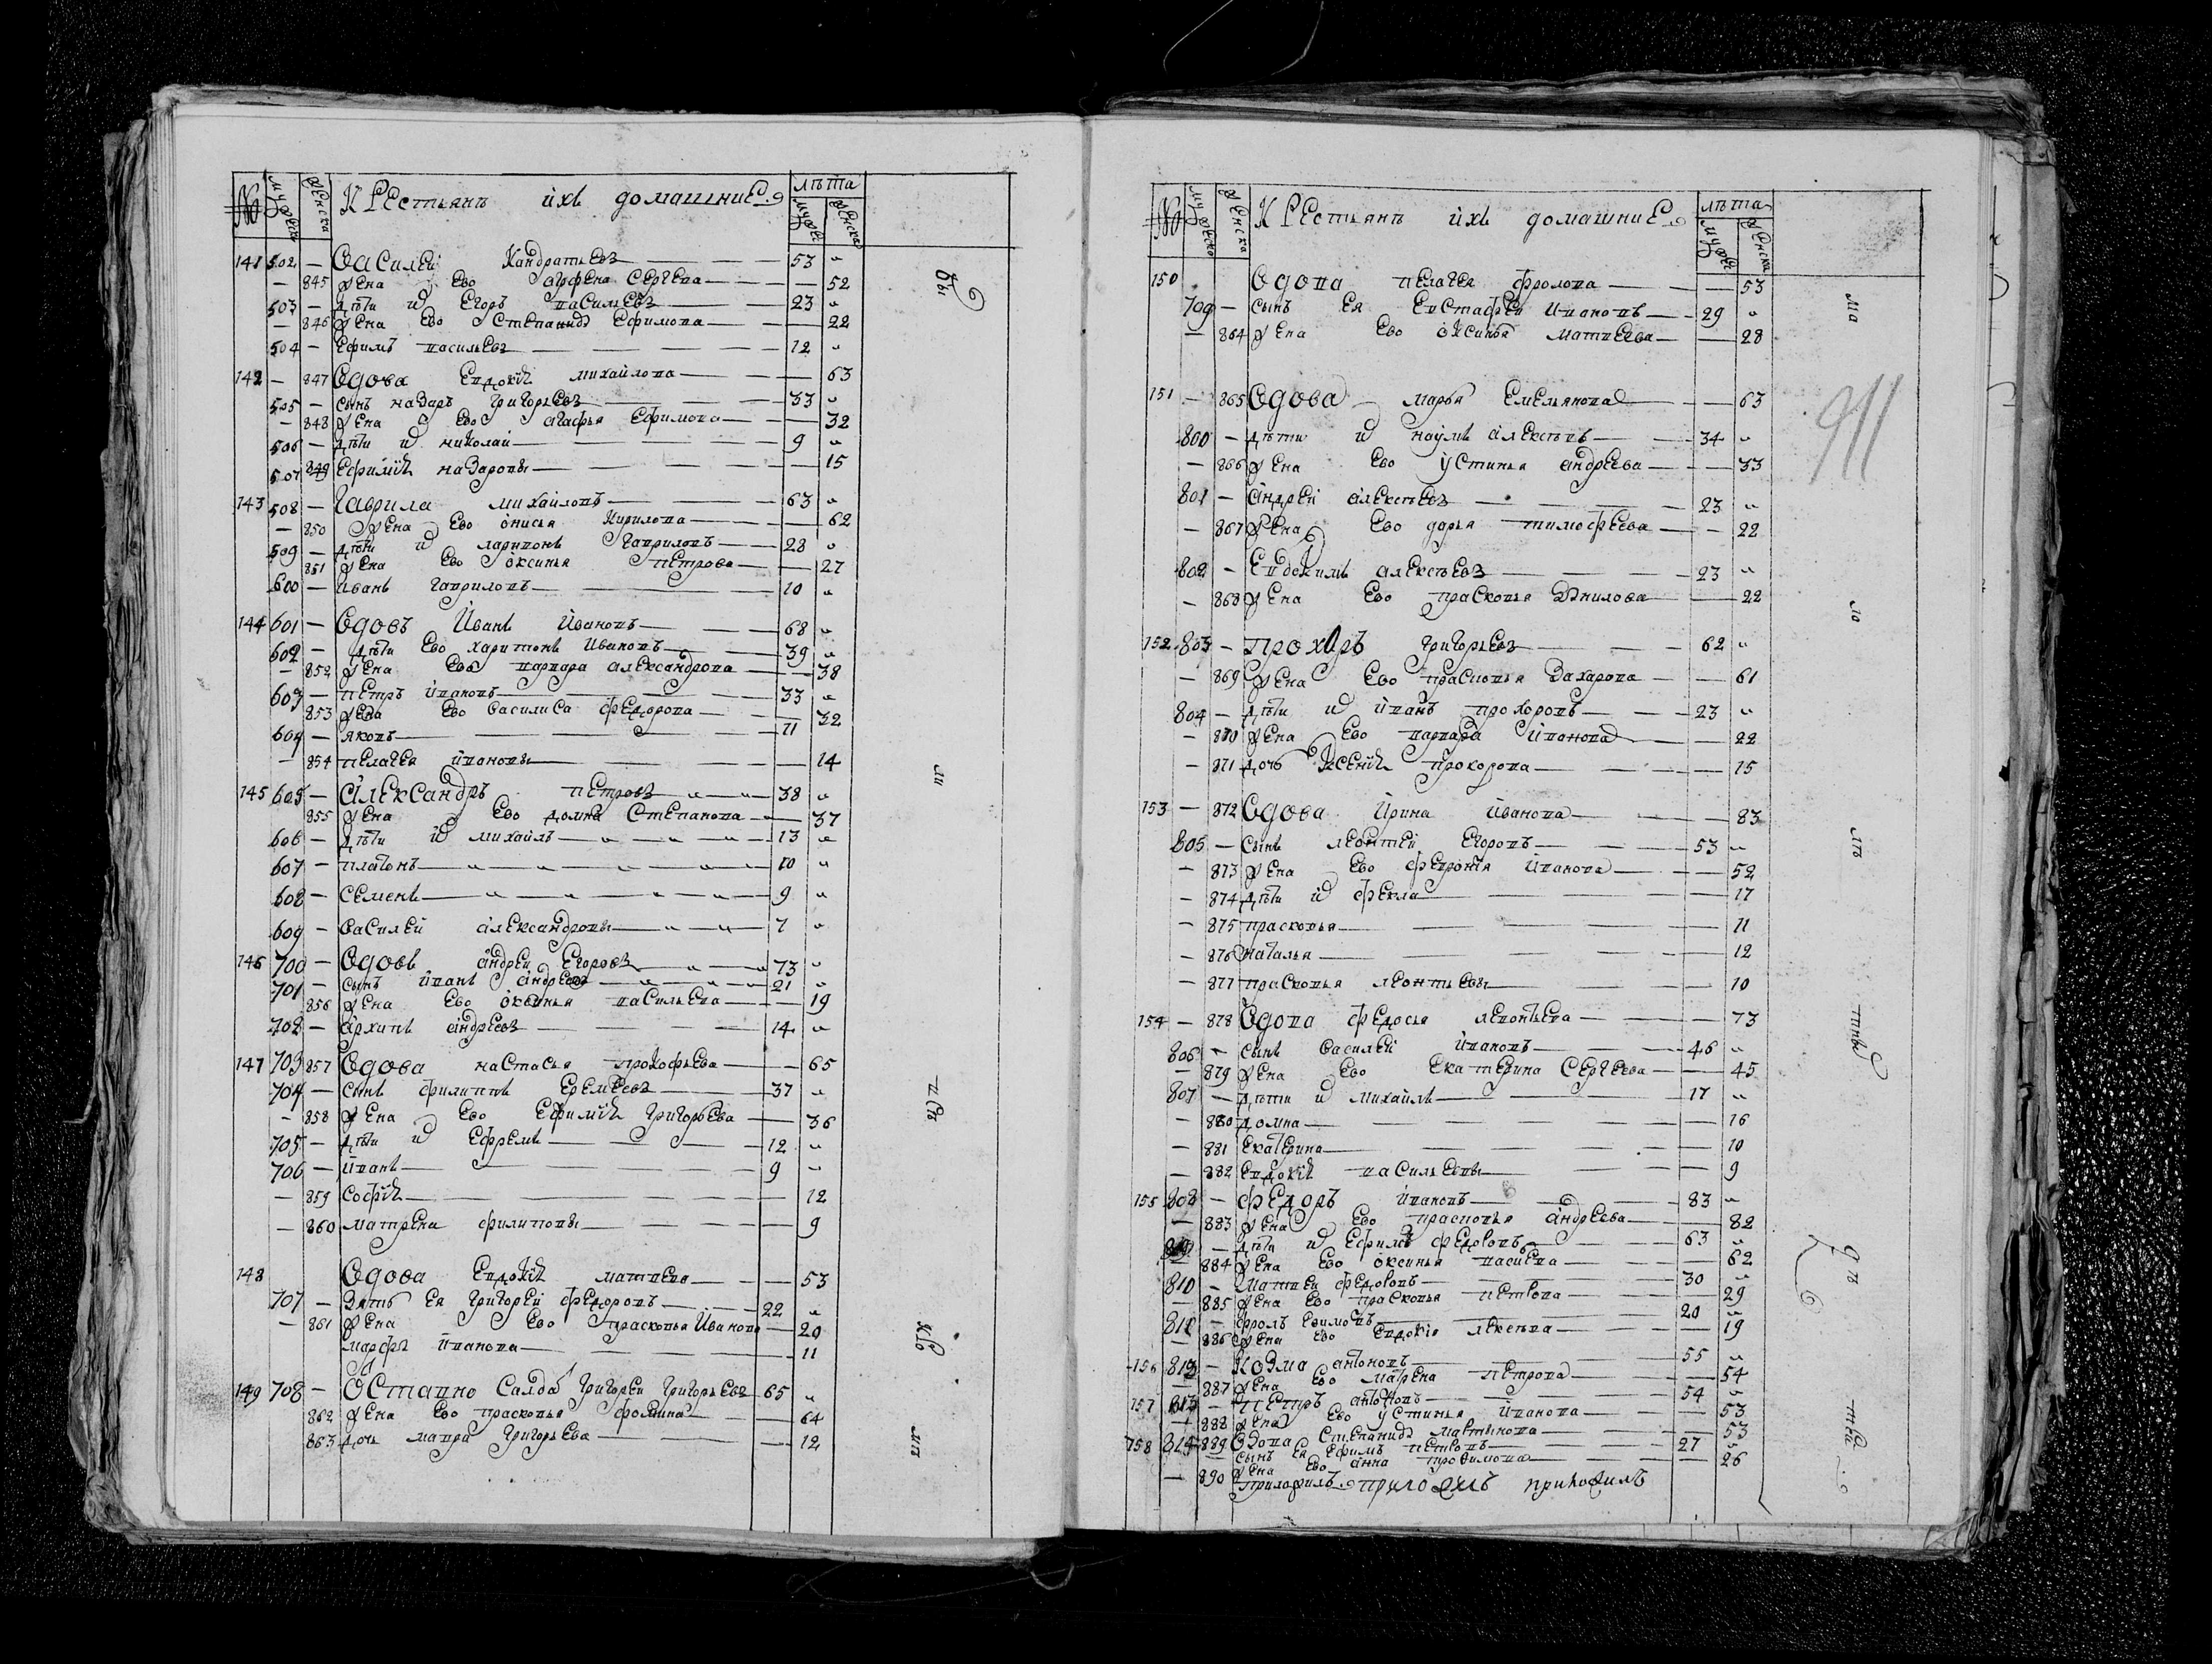 № мужеска женска Крестьянъ ихъ домашние лѣта мужес женска
141 502 — Василей Кандратьевъ 53 "
— 845 жена ево Агрфена Сергева — 52
503 — дѣти их Егоръ василевъ 23 "
— 846 жена ево Степанида Ефимова — 22
504 — Ефимъ васильевъ 12 "
142 — 847 Вдова Евдокия михайлова — 63
505 — сынъ назаръ Григорьевъ 33 "
— 848 жена ево агафья Ефимова — 32
506 — дѣти их николай 9 "
507 849 Ефимия назаровы — 15
143 508 — Гаврила михайловъ 63 "
— 850 жена ево онисья Кирилова — 62
509 — дѣти их ларивонъ Гавриловъ 28 "
851 жена ево оксинья петрова — 27
600 — Иванъ гавриловъ 10 "
144 601 — Вдовъ Иванъ Ивановъ 68 "
602 — дѣти ево харитонъ Ивановъ 39 "
— 852 жена ево варвара александрова — 38
603 — петръ ивановъ 33 "
853 жена ево василиса федорова — 32
604 — яковъ 11
— 854 пелагея ивановы — 14
145 605 — Александръ петровъ 38 "
855 жена ево домна Степанова — 37
606 — дѣти их михайлъ 13 "
607 — платонъ 10 "
608 — семенъ 9 "
609 — василей александровы 7 "
146 700 — Вдовъ андрей Егоровъ 73 "
701 — сынъ иванъ андреевъ 21 "
856 жена ево оксинья васильева — 19
702 — архипъ андреевъ 14 "
147 703 857 Вдова настасья прокофьева — 65
704 — сынъ филиппъ Еремеевъ 37 "
— 858 жена ево Ефимия григорьева — 36
705 — дѣти их Ефремъ 12 "
706 — иванъ 9 "
— 859 софия — 12
— 860 матрена филиповы — 9
148 Вдова Евдокия матвева — 53
707 — зять ея григорей федоровъ 22 "
— 861 жена ево прасковья Иванова — 20
марфа иванова — 11
149 708 — Отставно салда григорей григорьевъ 65 "
862 жена ево прасковья фомина — 64
863 дочь мавра григорьева — 12
№ мужеско женска Крестьянъ ихъ домашние лѣта мужес женска
150 Вдова пелагея фролова — 53
709 — сынъ ея Евстафей ивановъ 29 "
— 864 жена ево оксинья матвеева — 28
151 — 865 Вдова марья Емельянова — 63
800 — дѣти их наумъ алексѣевъ 34 "
— 866 жена ево устинья андреева — 33
801 — андрей алексѣевъ 23 "
— 867 жена ево дарья тимофеева — 22
802 — Евдокимъ алексѣевъ 23 "
— 868 жена ево прасковья данилова — 22
152 803 — прохаръ григорьевъ 62 "
— 869 жена ево прасковья захарова — 61
804 — дѣти их иванъ прохоровъ 23 "
— 870 жена ево варвара иванова — 22
— 871 дочь Ксения прохорова — 15
153 — 872 Вдова Ирина Иванова — 83
805 — сынъ леонтей Егоровъ 53 "
— 873 жена ево феврония иванова — 52
— 874 дѣти их фекла — 17
— 875 прасковья — 11
— 876 наталья — 12
— 877 прасковья леонтьевы — 10
154 — 878 Вдова федосья левонтьева — 73
806 — сынъ василей ивановъ 46 "
— 879 жена ево Екатерина Сергеева — 45
807 — дѣти их михайлъ 17 "
— 880 домна — 16
— 881 Екатерина — 10
— 882 Евдокия васильевы — 9
155 808 — федоръ ивановъ 83 "
— 883 жена ево прасковья андреева — 82
— дѣти их Ефимъ федоровъ 63 "
— 884 жена ево оксинья васиева — 62
810 — матвей федоровъ 30 "
— 885 жена ево прасковья петрова — 29
811 — фролъ Ефимовъ 20 "
— 886 жена ево Евдокия алексѣва — 19
156 812 — Козма антоновъ 55 "
— 887 жена ево марена петрова — 54
157 813 — петръ антоновъ 54 "
— 888 жена ево устинья иванова — 53
158 814 889 Вдова степанида мартынова — 53
— сынъ ея Ефимъ петровъ 27 "
— 890 жена ево анна трофимова — 26